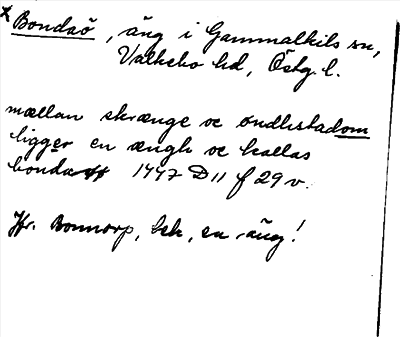 x Bondaö, äng i Gammalkils sn,
Valkebo hd, Östg. l.
mællan skrænge oc øndlistadom
ligger en ængh oc kallas
bondaø 1447 D 11 f 29 v.
Jfr. Bonnorp, beb., en äng!